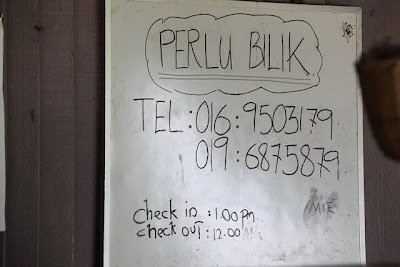 PERLU BILIK
TEL : 016 : 9503179
019 : 6875879
MIE
check in : 1.00 pm
check out : 12.00